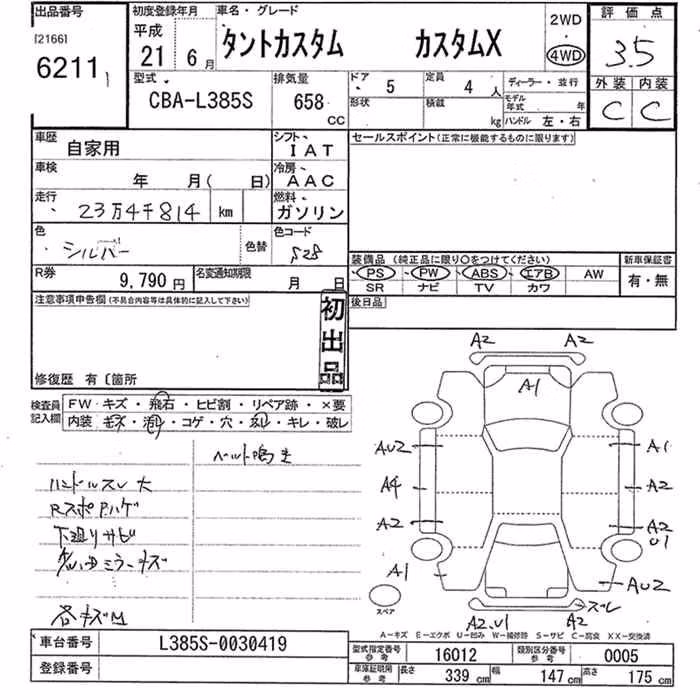 出品番号
[2166]
6211
初度登録年月
平成
21年 6月
車名・グレード
タントカスタム カスタムX
2WD
4WD
評価点
3.5
外装 内装
C C
型式
CBA-L385S
排気量
658 CC
ドア
5
定員
4人
形状
積載
kg
ディーラー・並行
モデル年式 年
ハンドル 左・右
車歴
自家用
シフト
IAT
車検
年 月( 日)
冷房
AAC
走行
23万4千814 km
燃料
ガソリン
色
シルバー
色替
色コード
S28
R券
9,790円
名変通知期限
月 日
セールスポイント(正常に機能するものに限ります)
装備品 (純正品に限り○をつけてください)
PS PW ABS エアB AW
SR ナビ TV カワ
新車保証書
有・無
後日品
注意事項申告欄(不具合内容等は具体的に記入して下さい)
初出品
修復歴 有 〔箇所
検査員記入欄
FW キズ・飛石・ヒビ割・リペア跡・×要
内装 キズ・汚れ・コゲ・穴・ハガレ・キレ・破レ
ベルト鳴き
ハンドルスレ大
Rスポ Pハゲ
下廻りサビ
ミラーキズ
各キズM
A2 A2
A1
AU2 A1
A4 A2
A2 A2
U1
A1 AU2
ズレ
A2.U1 A2
スペア
A-キズ E-エクボ U-凹み W-補修跡 S-サビ C-腐食 XX-交換済
車台番号
L385S-0030419
登録番号
型式指定番号 参考 16012
類別区分番号 参考 0005
車庫証明用 参考
長さ 339cm
幅 147cm
高さ 175cm